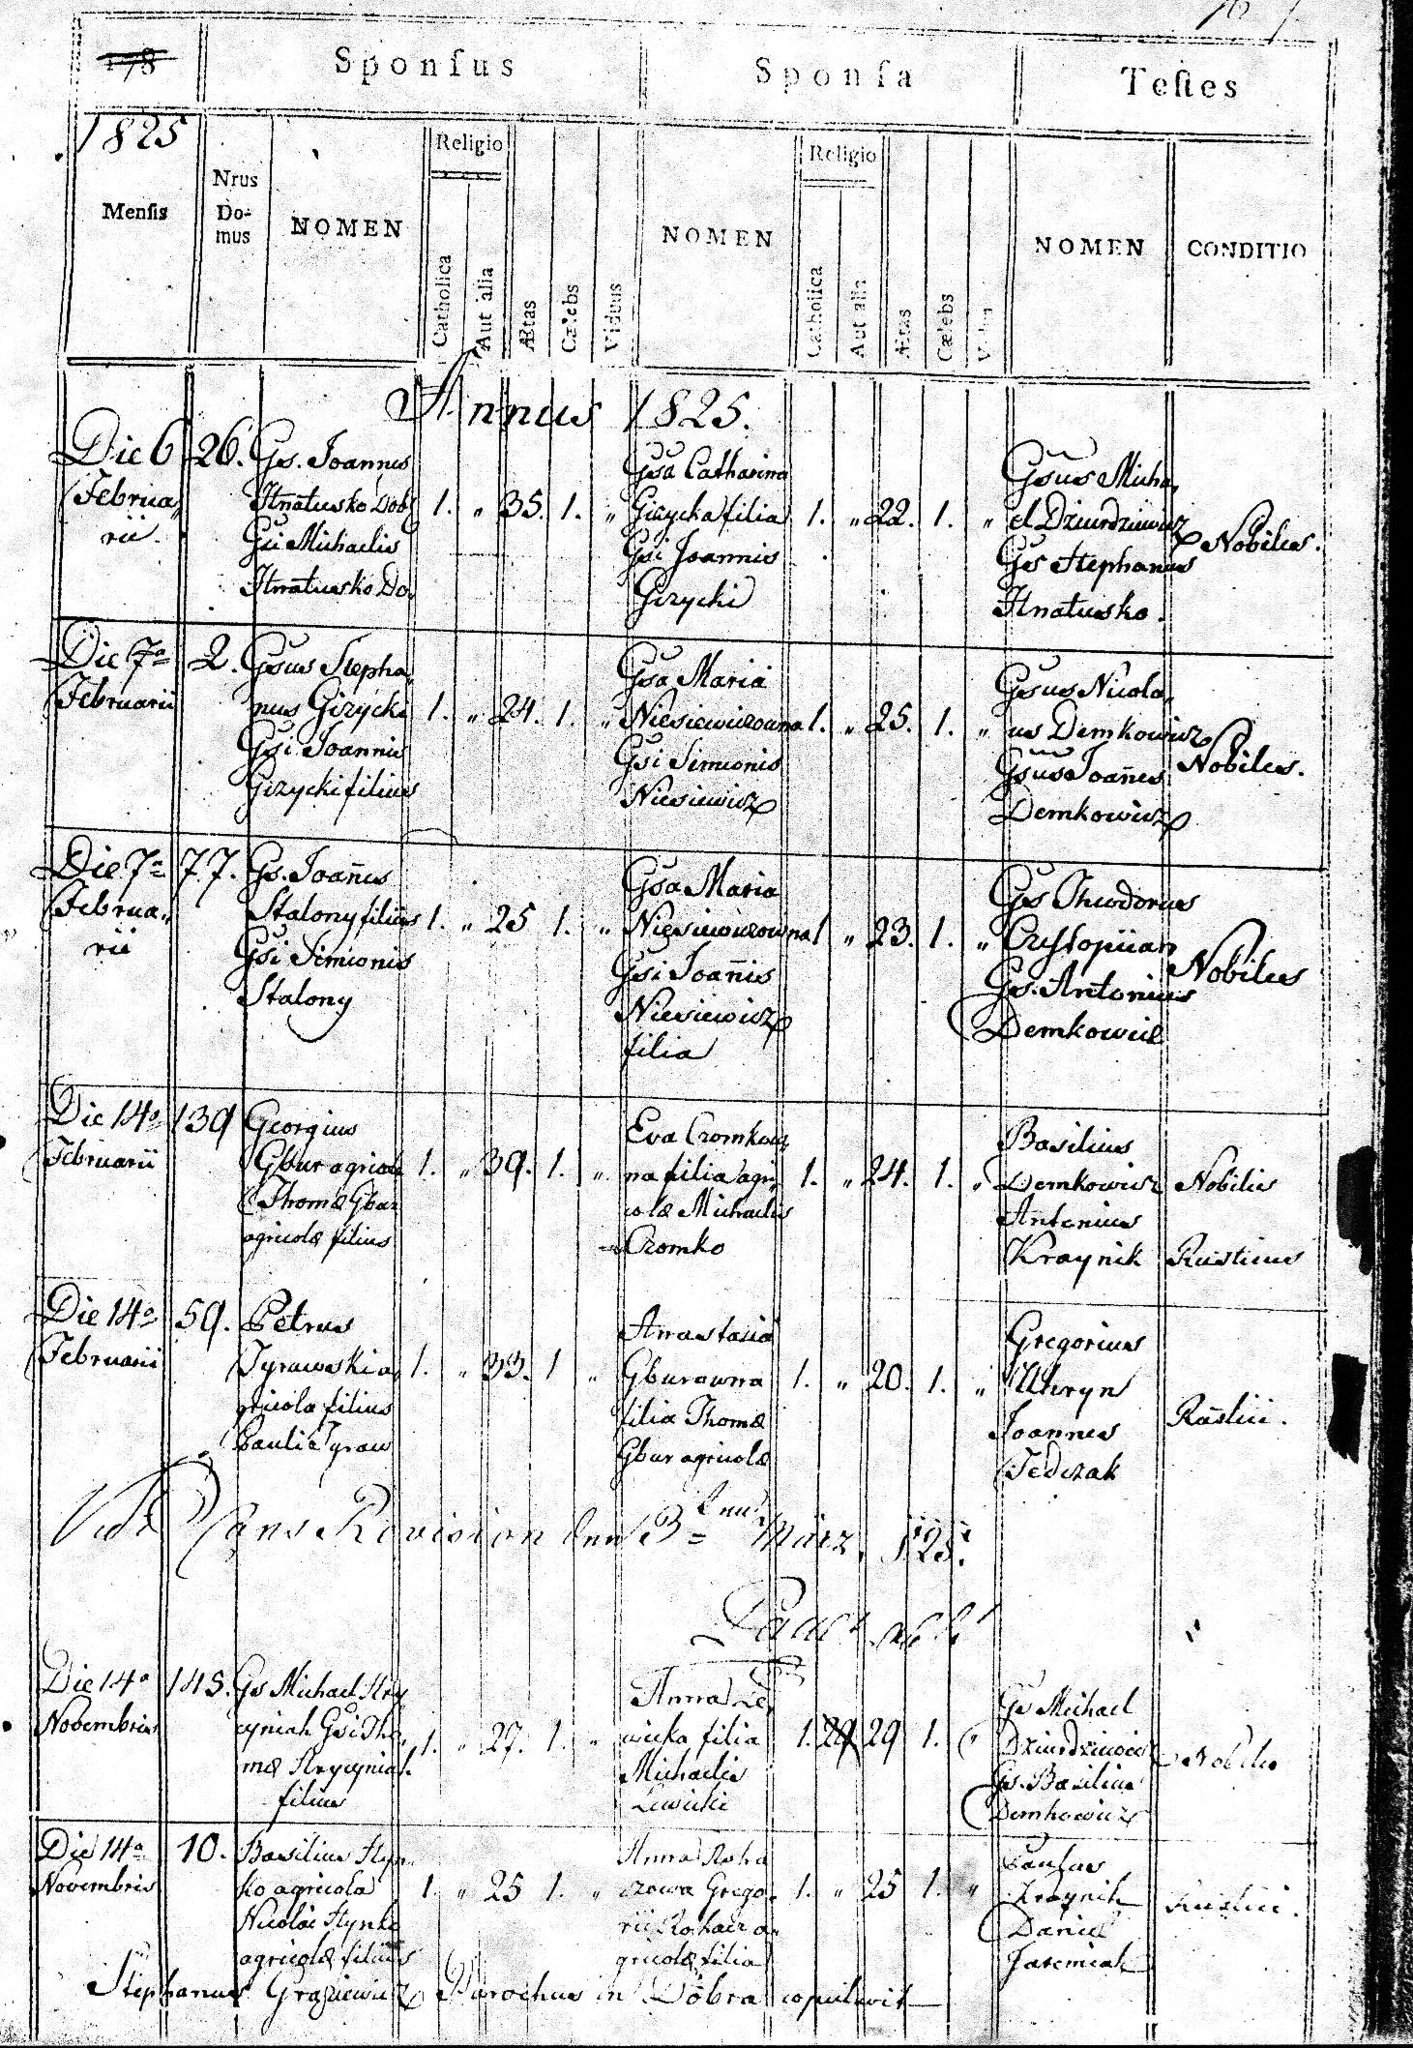 178
Sponsus
Sponsa
Testes
1825
Mensis
Nrus
Do-
mus
NOMEN
Religio
Catholica
Aut alia
Ætas
Cælebs
Viduus
NOMEN
Religio
Catholica
Aut alia
Ætas
Cælebs
NOMEN
CONDITIO
Annus 1825.
Die 6
Februa,,
rii.
26.
Gs. Joannes
Hnatusko Dob
Gsi Michaelis
Hnatusko Do,
1. " 35. 1. "
Gsa Catharina
Gizycka filia
Gsi Joannis
Gizycki
1. " 22. 1. "
Gsus Micha,
el Dziurdziewicz
Gs Stephanus
Hnatusko.
Nobiles.
Die 7a
Februarii
2.
Gsus Stepha,
nus Gizycki
Gsi Joannis
Gizycki filius
1. " 24. 1. "
Gsa Maria
Niesiewiczowna
Gsi Simionis
Niesiewicz
1. " 25. 1. "
Gsus Nicola,
us Demkowicz
Gsus Joañes
Demkowicz
Nobiles.
Die 7a
Februa,,
rii
77.
Gs. Joañes
Stalony filius
Gsi Simionis
Stalony
1. " 25 1. "
Gsa Maria
Niesiewiczowna
Gsi Joañis
Niesiewicz
filia
1 " 23. 1. "
Gs Theodorus
Gs. Antonius
Demkowicz
Nobiles
Die 14a
Februarii
139
Georgius
Gbur agricola
Thomæ Gbur
agricolæ filius
1. " 39. 1. "
Eva Cromkow,
na filia agri,
colæ Michaelis
Cromko
1. " 24. 1. "
Basilius
Demkowicz
Antonius
Kraynik
Nobilis
Rusticus
Die 14a
Februarii
59.
Petrus
Tyrawski a,
gricola filius
Pauli Tyraw
1. " 33. 1 "
Anastasia
Gburowna
filia Thomæ
Gbur agricolæ
1. " 20. 1. "
Gregorius
Uhryn
Joannes
Fedczak
Rustici.
Revision den 3 März 1825.
Die 14a
Novembris
145.
Gs Michael Hry
cyniak Gsi Tho,
mæ Hrycyniak
filius
1. " 27. 1. "
Anna Le,
wicka filia
Michaelis
Lewicki
1. 29 29 1. "
Gs Michael
Dziurdziewicz
Gs. Basilius
Demkowicz
Nobiles
Die 14a
Novembris
10.
Basilius Hyn,
ko agricola
Nicolai Hynko
agricolæ filius
1. " 25 1. "
Anna Roha
czowa Grego,
rii Rohacz a,
gricolæ filia
1. " 25 1. "
Paulus
Kraynik
Daniel
Jaremiak
Rustici.
Stephanus Grasiewicz Parochus in Dobra copulavit